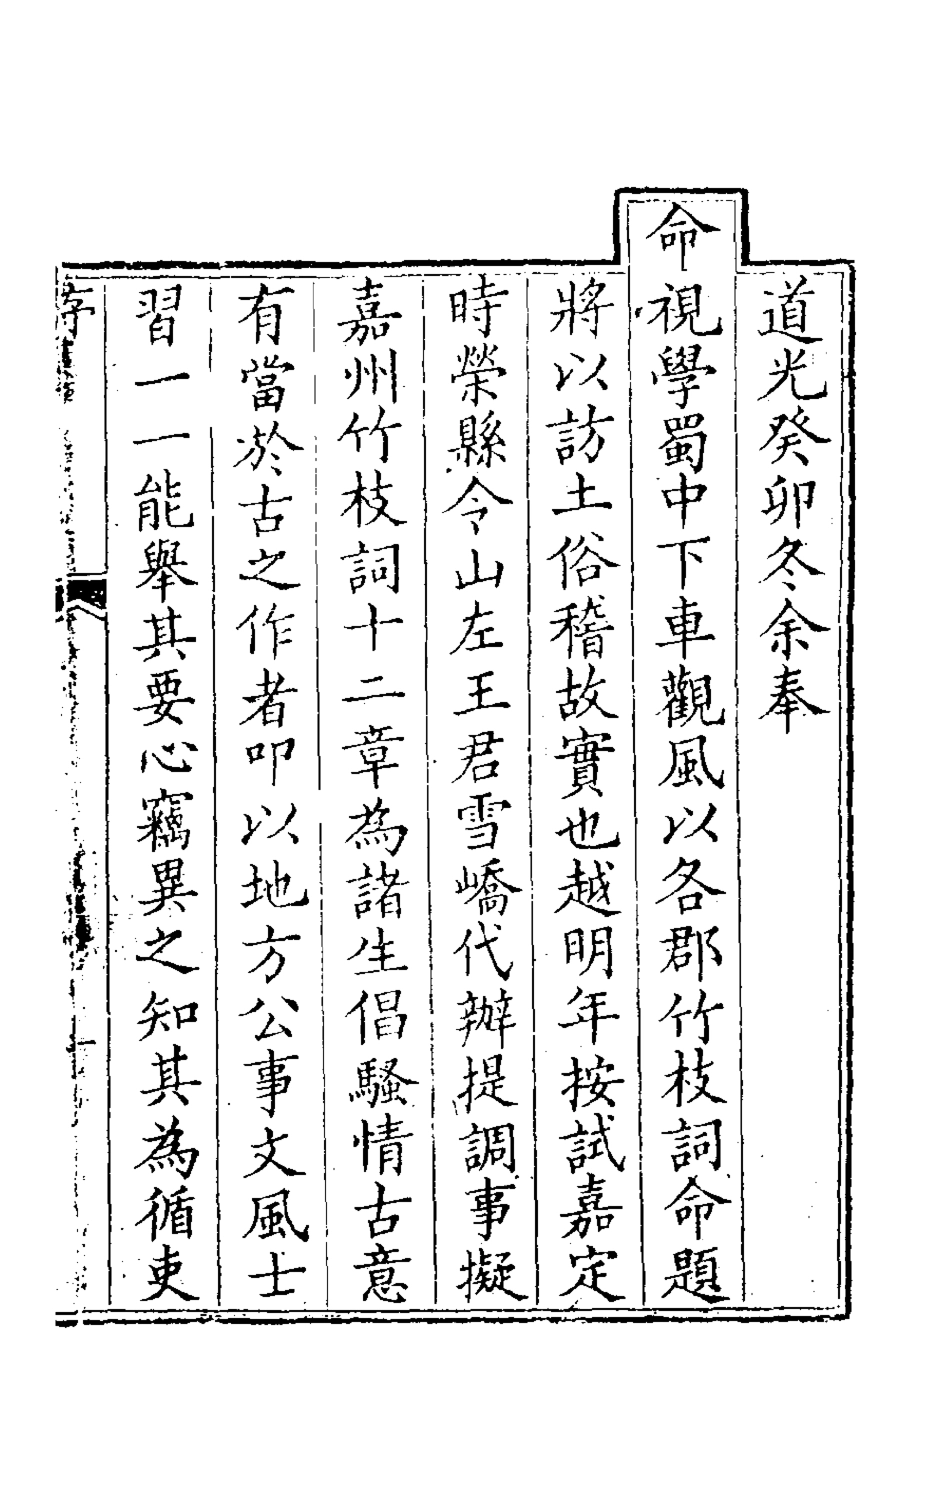 道光癸卯冬余奉
命視學蜀中下車觀風以各郡竹枝詞命題
將以訪土俗稽故實也越明年按試嘉定
時榮縣令山左王君雪嶠代辦提調事擬
嘉州竹枝詞十二章為諸生倡騷情古意
有當於古之作者叩以地方公事文風士
習一一能舉其要心竊異之知其為循吏
序
一